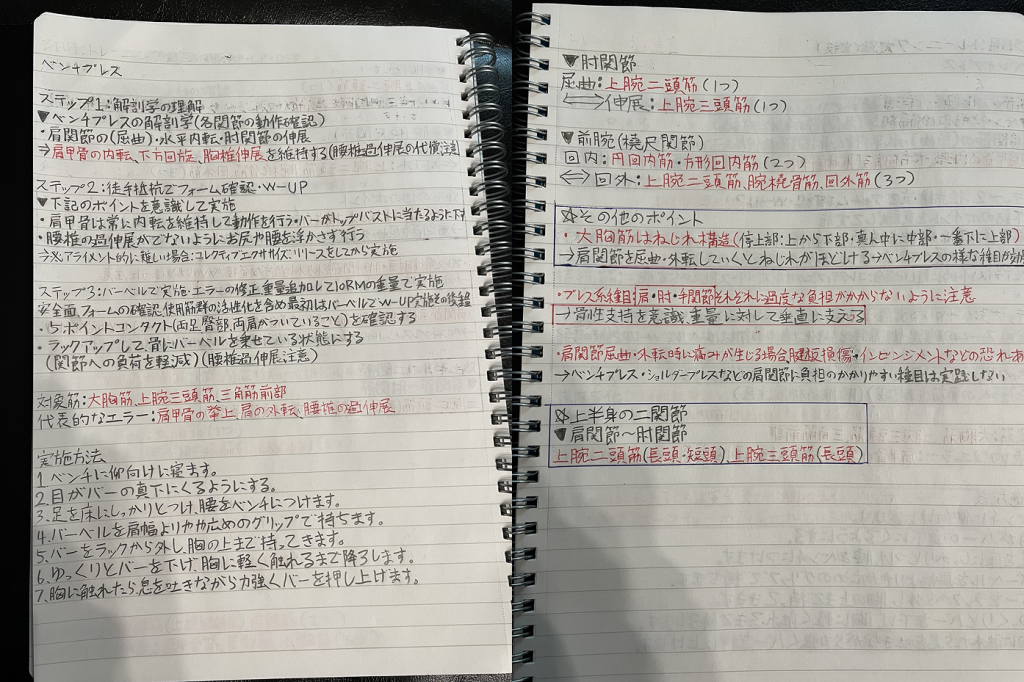 ベンチプレス
ステップ1:解剖学の理解
▼ベンチプレスの解剖学(各関節の動作確認)
・肩関節の(屈曲)・水平内転・肘関節の伸展
→肩甲骨の内転、下方回旋、胸椎伸展を維持する(腰椎過伸展の代償注意)
ステップ2:徒手抵抗でフォーム確認・W-UP
▼下記のポイントを意識して実施
・肩甲骨は常に内転を維持して動作を行う・バーがトップバストに当たるよう下す
・腰椎の過伸展がでないようにお尻や腰を浮かさず行う
→※アライメント的に難しい場合:コレクティブエクササイズ・リリースをしてから実施
ステップ3:バーベルで実施・エラーの修正、重量追加して10RMの重量で実施
安全面、フォームの確認、使用筋群の活性化を含め最初はバーベルでW-UP実施その後重量
・5ポイントコンタクト(両足、臀部、両肩がついていること)を確認する
・ラックアップして、骨にバーベルを乗せている状態にする
(関節への負荷を軽減)(腰椎過伸展注意)
対象筋:大胸筋、上腕三頭筋、三角筋前部
代表的なエラー:肩甲骨の挙上、肩の外転、腰椎の過伸展
実施方法
1.ベンチに仰向けに寝ます。
2.目がバーの真下にくるようにする。
3.足を床にしっかりとつけ、腰をベンチにつけます。
4.バーベルを肩幅よりやや広めのグリップで持ちます。
5.バーをラックから外し、胸の上まで持ってきます。
6.ゆっくりとバーを下げ、胸に軽く触れるまで降ろします。
7.胸に触れたら、息を吐きながら力強くバーを押し上げます。
▼肘関節
屈曲:上腕二頭筋(1つ)
⟺伸展:上腕三頭筋(1つ)
▼前腕(橈尺関節)
回内:円回内筋・方形回内筋(2つ)
⟺回外:上腕二頭筋、腕橈骨筋、回外筋(3つ)
☆その他のポイント
・大胸筋はねじれ構造(停止部:上から下部・真ん中に中部・一番下に上部)
→肩関節を屈曲・外転していくとねじれがほどける→ベンチプレスの様な種目が効
・プレス系種目:肩・肘・手関節それぞれに過度な負担がかからないように注意
→骨性支持を意識、重量に対して垂直に支える
・肩関節屈曲・外転時に痛みが生じる場合、腱板損傷・インピンジメントなどの恐れあ
→ベンチプレス・ショルダープレスなどの肩関節に負担のかかりやすい種目は実践しない
☆上半身の二関節
▼肩関節〜肘関節
上腕二頭筋(長頭・短頭)、上腕三頭筋(長頭)